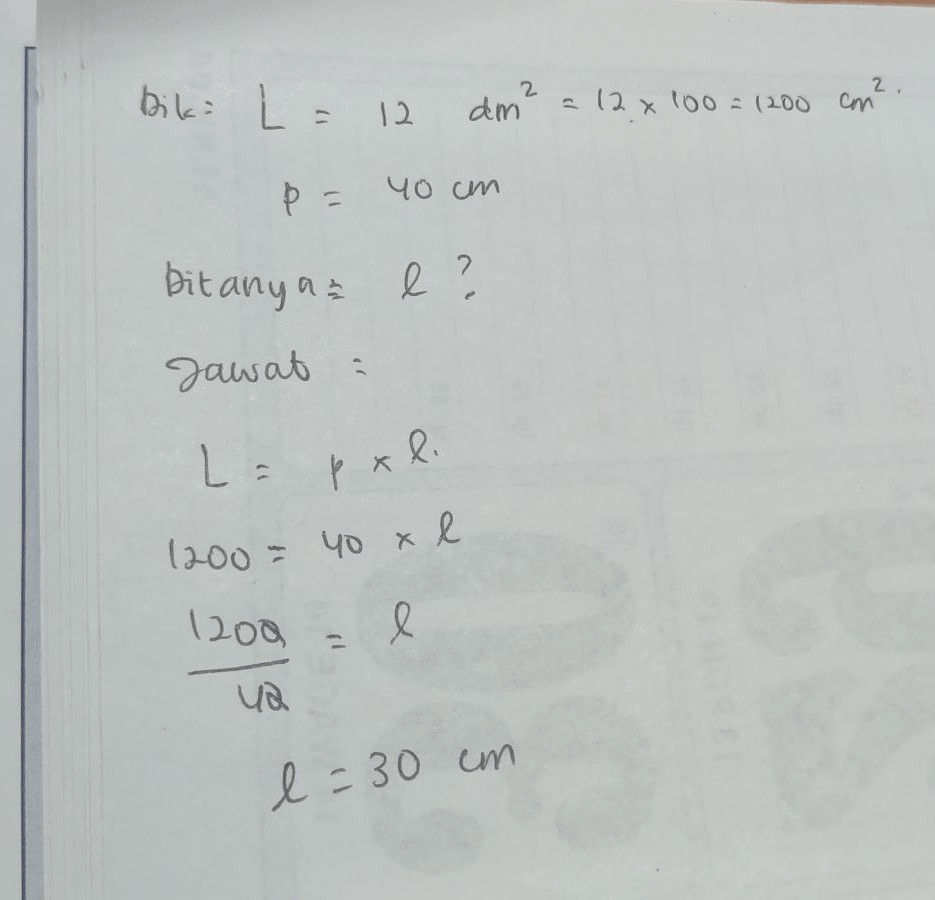 Dik: L = 12 dm² = 12 x 100 = 1200 cm².
p = 40 cm
Ditanya = l ?
Jawab =
L = p x l.
1200 = 40 x l
1200 = l
40
l = 30 cm